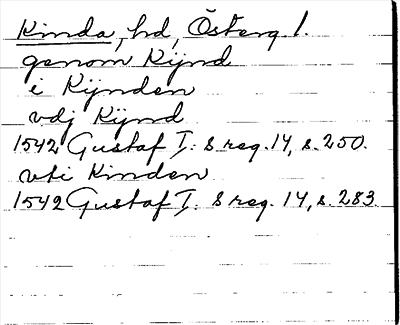 Kinda, hd, Österg. l.
genom Kijnd
i Kijnden
vdj Kijnd
1542 Gustaf I: s reg. 14, s. 250.
vti Kinden
1542 Gustaf I: s reg. 14, s. 283.